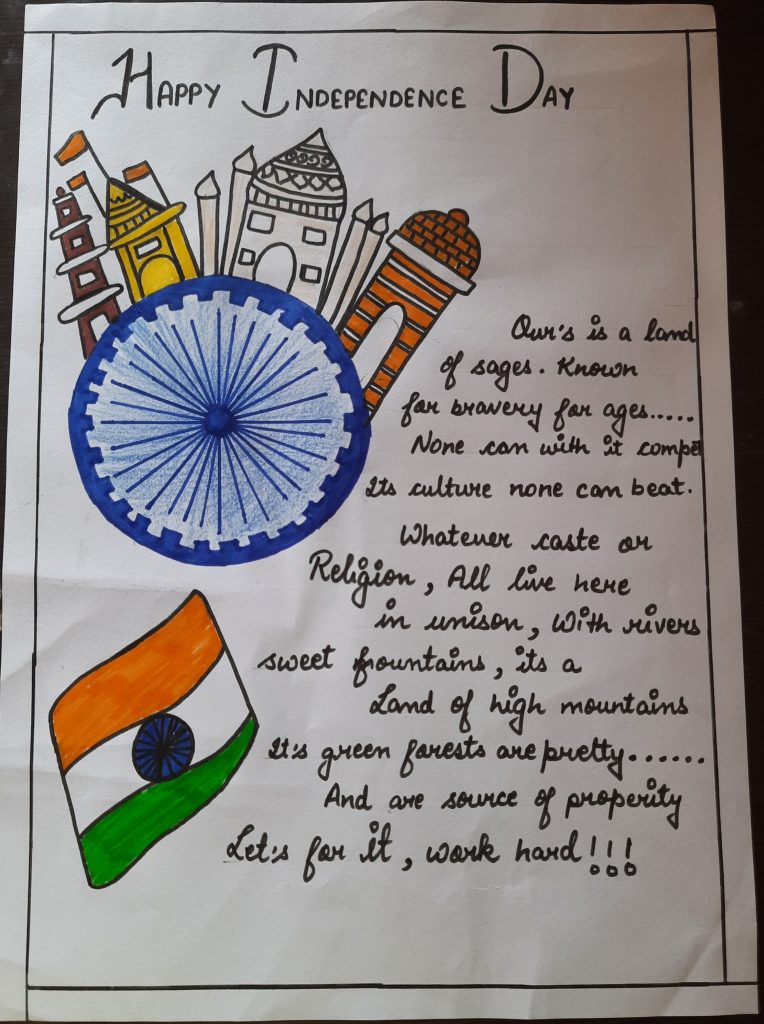 HAPPY INDEPENDENCE DAY
Our's is a land
of sages. Known
for bravery for ages.....
None can with it compe
Its culture none can beat.
Whatever caste or
Religion, All live here
in unison, With rivers
sweet fountains, its a
Land of high mountains
It's green forests are pretty......
And are source of properity
Let's for it, work hard!!!